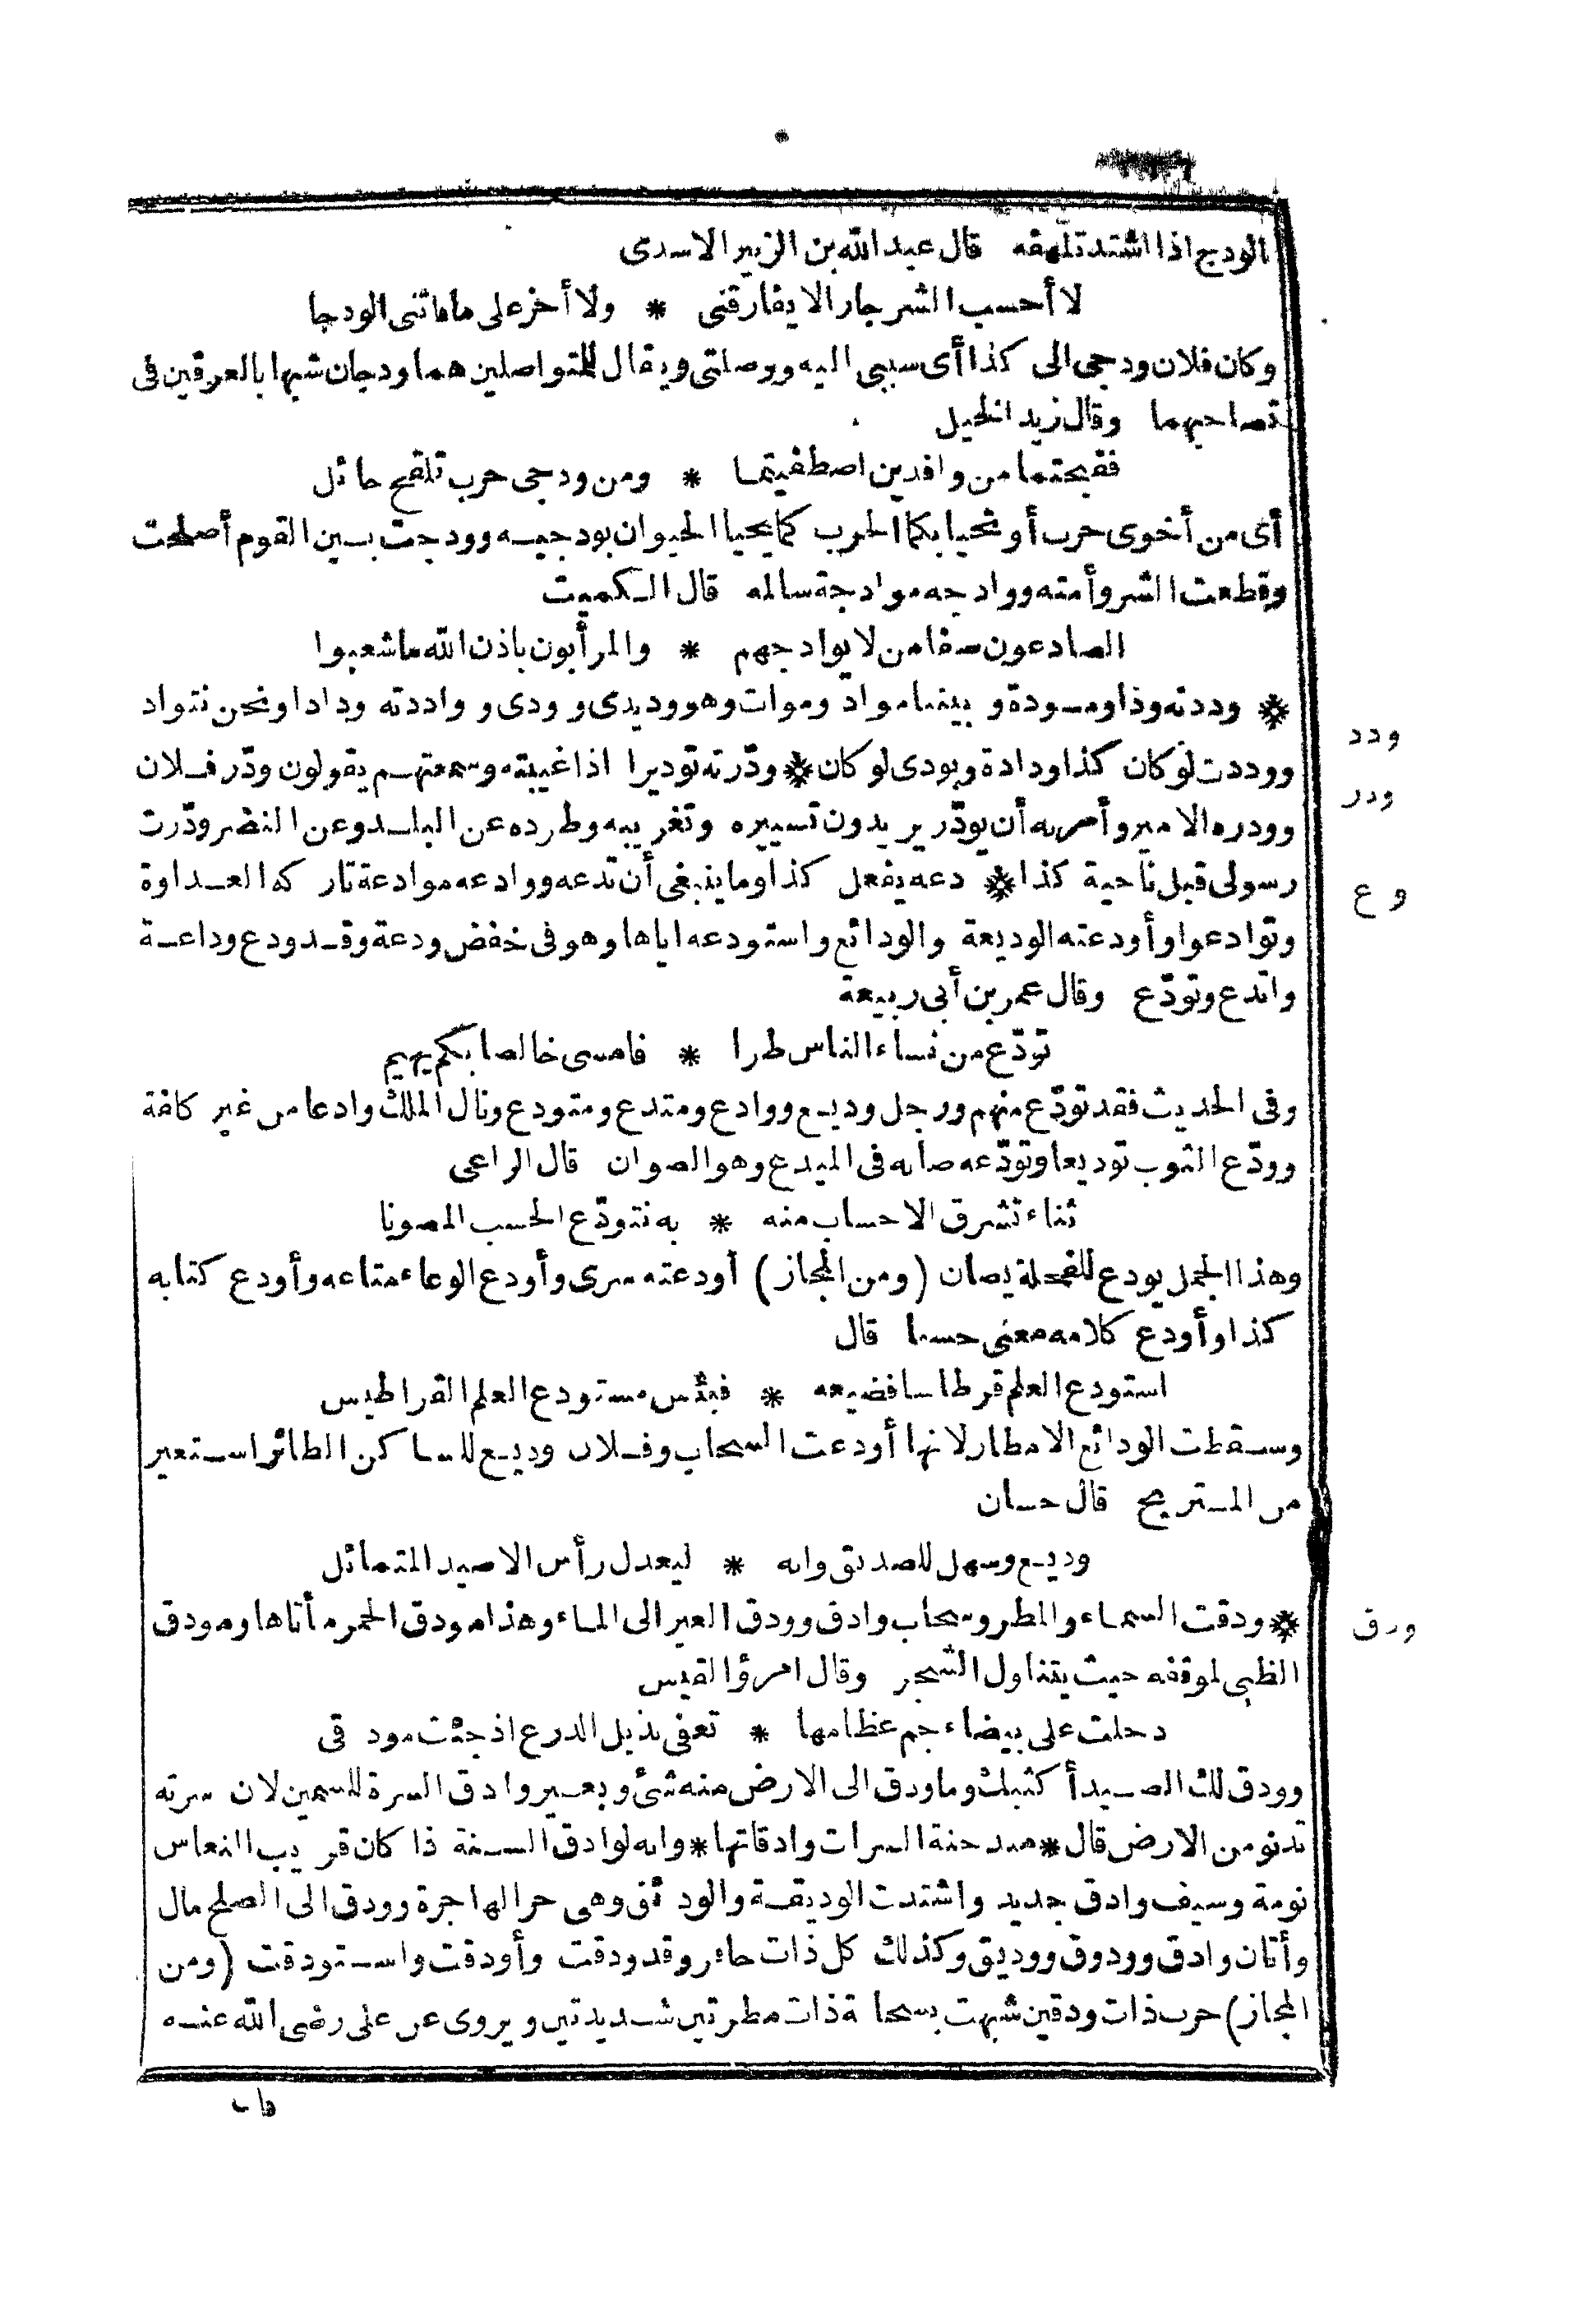 الودج اذا اشتد تلهفه قال عبد الله بن الزبير الاسدى
لا أحسب الشر جارا لا يفارقنى * ولا أحز على ما فاتنى الودجا
وكان فلان ودجى الى كذا أى سببى اليه ووصلتى ويقال للمتواصلين هما ودجان شبها بالعرقين فى
تصاحبهما وقال زيد الخيل
فقبحتما من وافدين اصطفيتما * ومن ودجى حرب تلقح حائل
أى من أخوى حرب أو تحيا بكما الحرب كما يحيا الحيوان بودجيه وودجت بين القوم أصلحت
وقطعت الشر وأمته ووادجه موادجة سالمه قال الكميت
الصادعون صفا من لا يوادجهم * والمرأبون باذن الله ما شعبوا
* وددته ودا ومودة و بيننا مواد وموات وهو وديدى و ودى و واددته ودادا ونحن نتواد
ودد
ووددت لو كان كذا ودادة وبودى لو كان * ودّرته توديرا اذا غيبته وسمعتهم يقولون ودّر فلان
ودر
وودره الامير وأمر به أن يودّر يريدون تسييره وتغريبه وطرده عن البلد وعن النضر ودّرت
رسولى قبل ناحية كذا * دعه يفعل كذا وما ينبغى أن تدعه ووادعه موادعة تاركه العداوة
و ع
وتوادعوا وأودعته الوديعة والودائع واستودعه اياها وهو فى خفض ودعة وقد ودع وداعة
واتدع وتودّع وقال عمر بن أبى ربيعة
تودّع من نساء الناس طرا * فامسى خالصا بكم يهيم
وفى الحديث فقد تودّع منهم ورجل وديع ووادع ومتدع ومتودع ونال الملك وادعا من غير كلفة
وودّع الثوب توديعا وتودّعه صانه فى الميدع وهو الصوان قال الراعى
ثناء تشرق الاحساب منه * به نتودّع الحسب المصونا
وهذا الجمل يودع للفحلة يصان (ومن المجاز) أودعته سرى وأودع الوعاء متاعه وأودع كتابه
كذا وأودع كلامه معنى حسنا قال
استودع العلم قرطاسا فضيعه * فبئس مستودع العلم القراطيس
وسقطت الودائع الامطار لانها أودعت السحاب وفلان وديع للساكن الطائر استعير
من المستريح قال حسان
وديع وسهل للصديق وانه * ليعدل رأس الاصيد المتمائل
* ودقت السماء والمطر وسحاب وادق وودق العير الى الماء وهذا مودق الحمر مأتاها ومودق
ودق
الظبى لموقفه حيث يتناول الشجر وقال امرؤ القيس
دخلت على بيضاء جم عظامها * تعفى بذيل الدرع اذ جئت مودقى
وودق لك الصيد أكثبك وما ودق الى الارض منه شئ وبعير وادق السرة للسمين لان سرته
تدنو من الارض قال * مندحنة السرات وادقاتها * وانه لوادق السنة ذا كان قريب النعاس
نومة وسيف وادق حديد واشتدت الوديقة والودئق وهى حر الهاجرة وودق الى الصلح مال
وأتان وادق وودوق ووديق وكذلك كل ذات حافر وقد ودقت وأودقت واستودقت (ومن
المجاز) حرب ذات ودقين شبهت بسحابة ذات مطرتين شديدتين ويروى عن على رضى الله عنه
فا ن